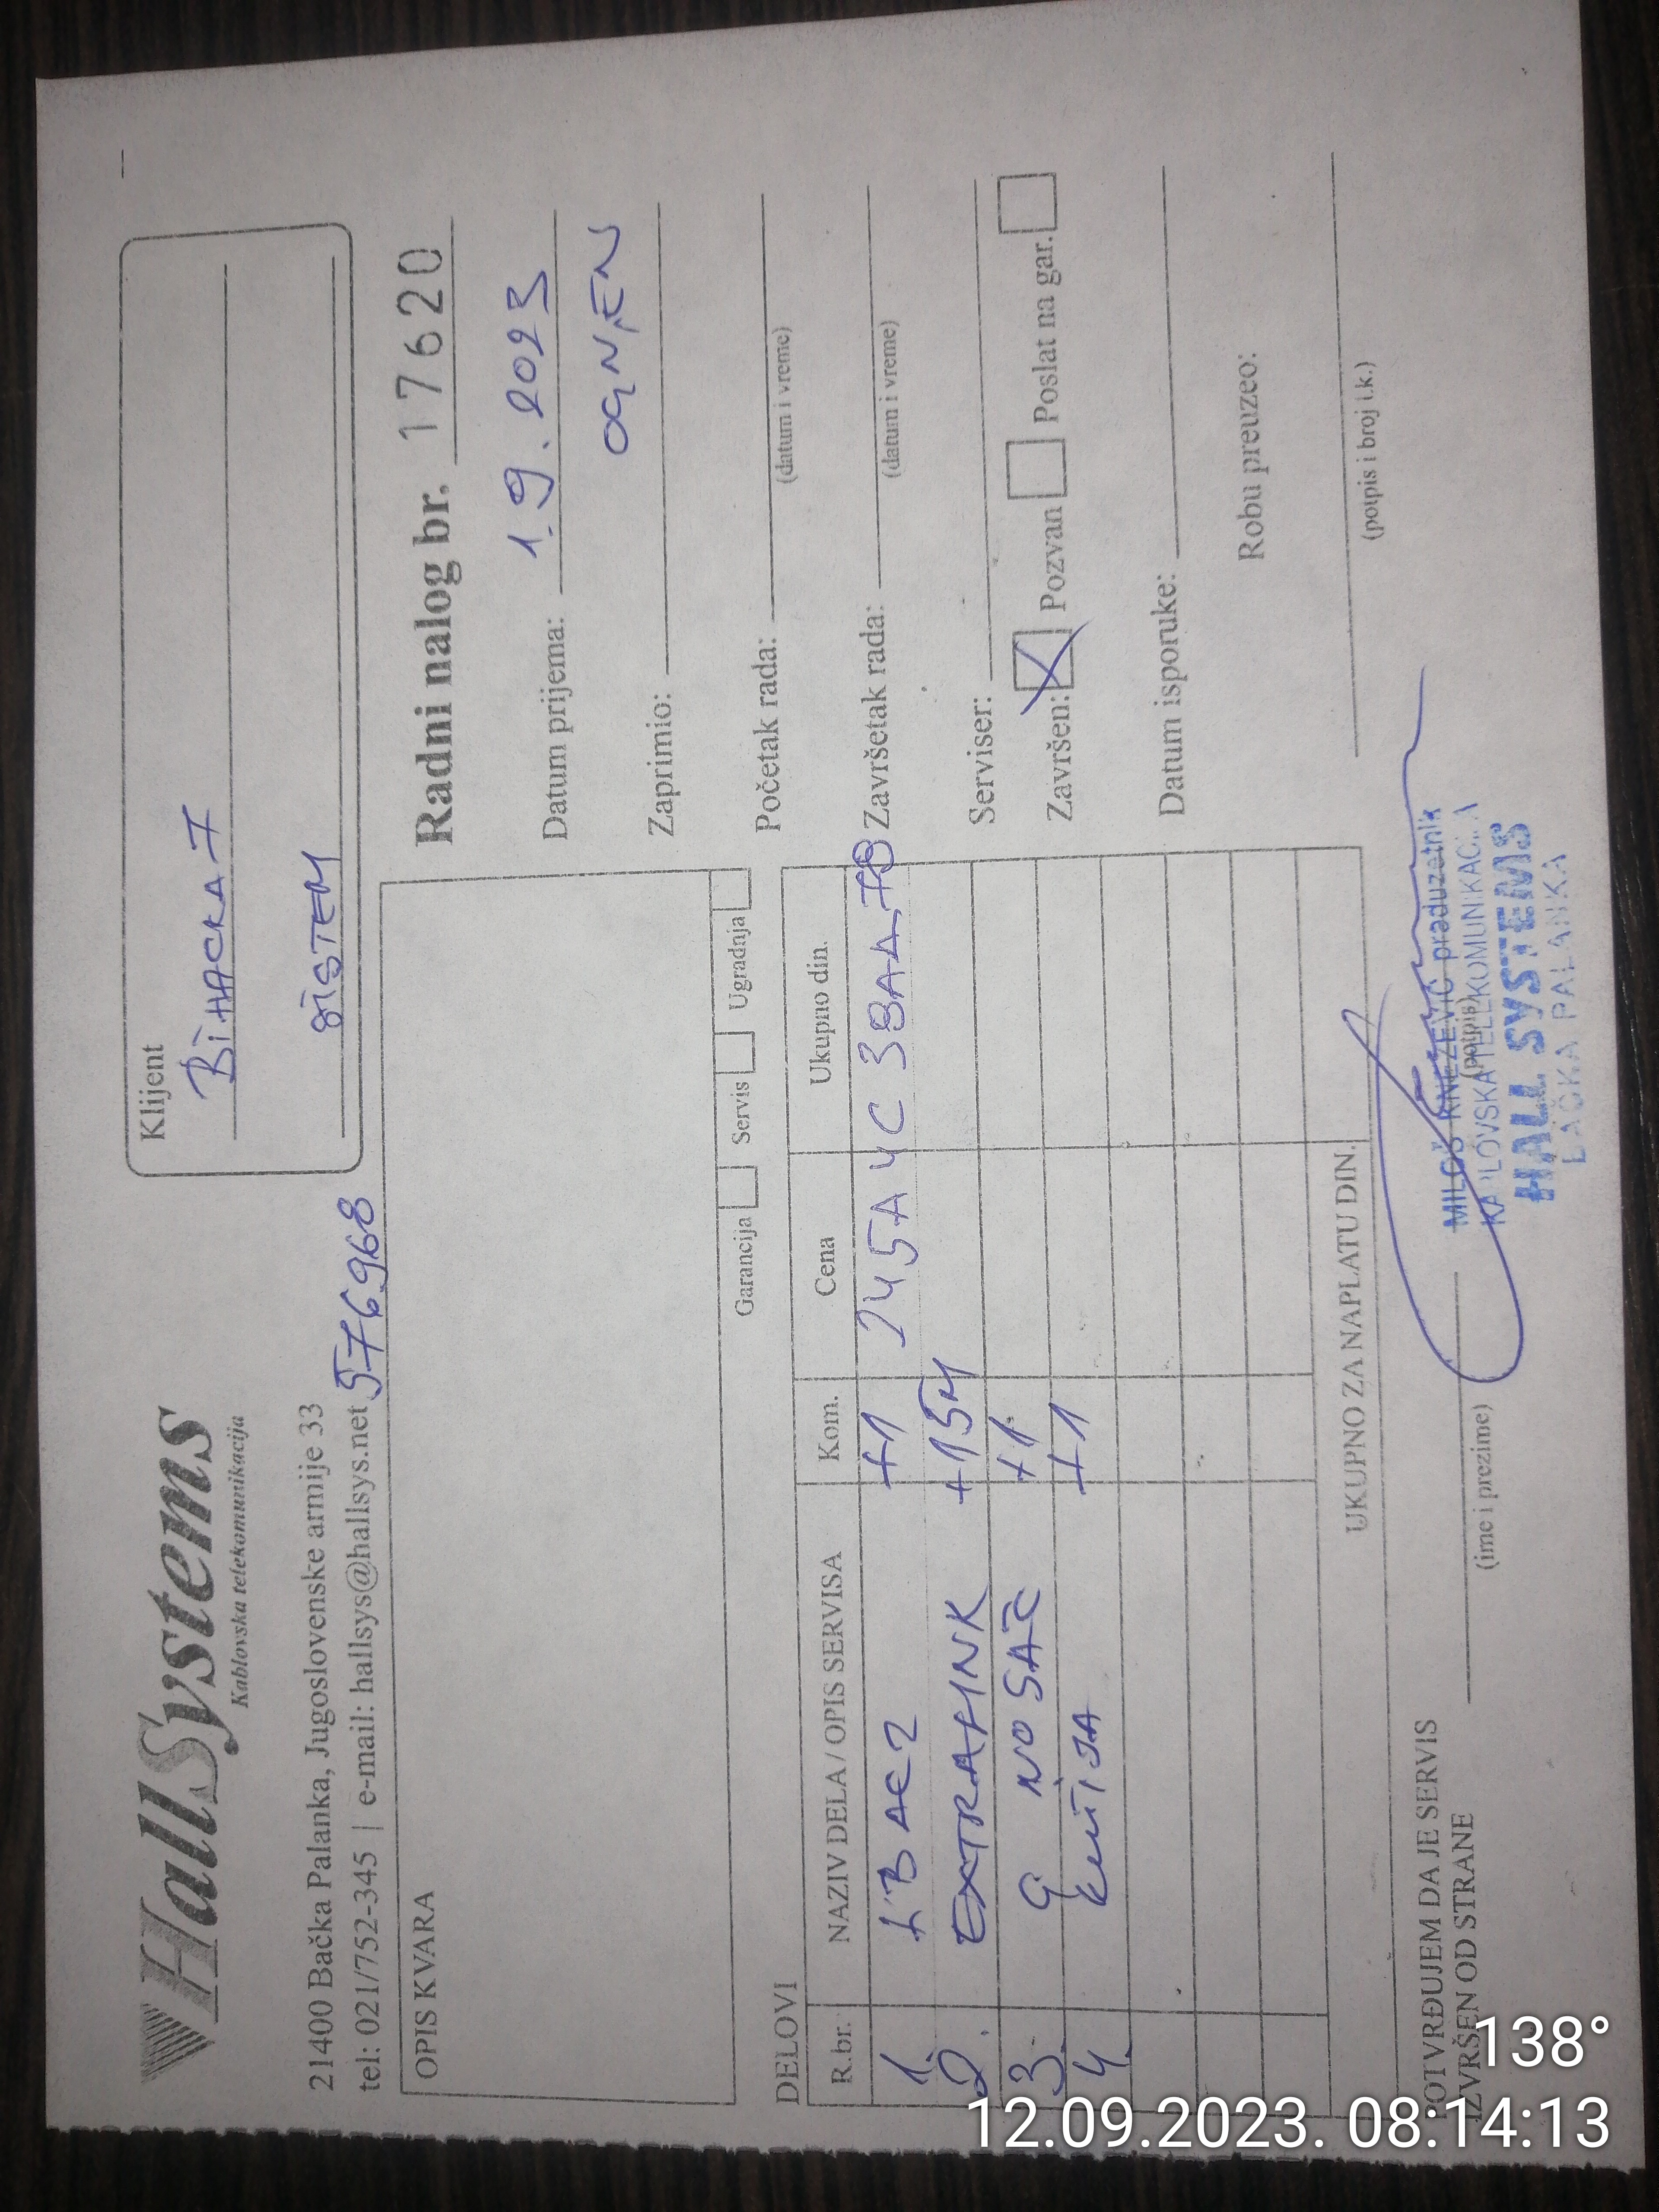 HallSystems
Kablovska telekomunikacija
21400 Bačka Palanka, Jugoslovenske armije 33
tel: 021/752-345 | e-mail: hallsys@hallsys.net
576968
Klijent
BIHACKA 7
SISTEM
OPIS KVARA
Garancija Servis Ugradnja
Radni nalog br. 17620
Datum prijema: 1.9.2023
Zaprimio: OGNJEN
Početak rada:
(datum i vreme)
Završetak rada:
(datum i vreme)
Serviser:
Završen: Pozvan Poslat na gar.
Datum isporuke:
Robu preuzeo:
(potpis i broj l.k.)
DELOVI
R.br. NAZIV DELA / OPIS SERVISA Kom. Cena Ukupno din.
1. +1
2. +15M
3. G NOSAČ +1
4. KUTIJA +1
UKUPNO ZA NAPLATU DIN.
POTVRĐUJEM DA JE SERVIS
IZVRŠEN OD STRANE
(ime i prezime)
(potpis)
MILOŠ KNEŽEVIĆ preduzetnik
KABLOVSKA TELEKOMUNIKACIJA
HALL SYSTEMS
BAČKA PALANKA
138°
12.09.2023. 08:14:13